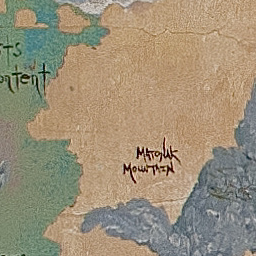 STS
ontent
MATONUK
MOUNTAIN